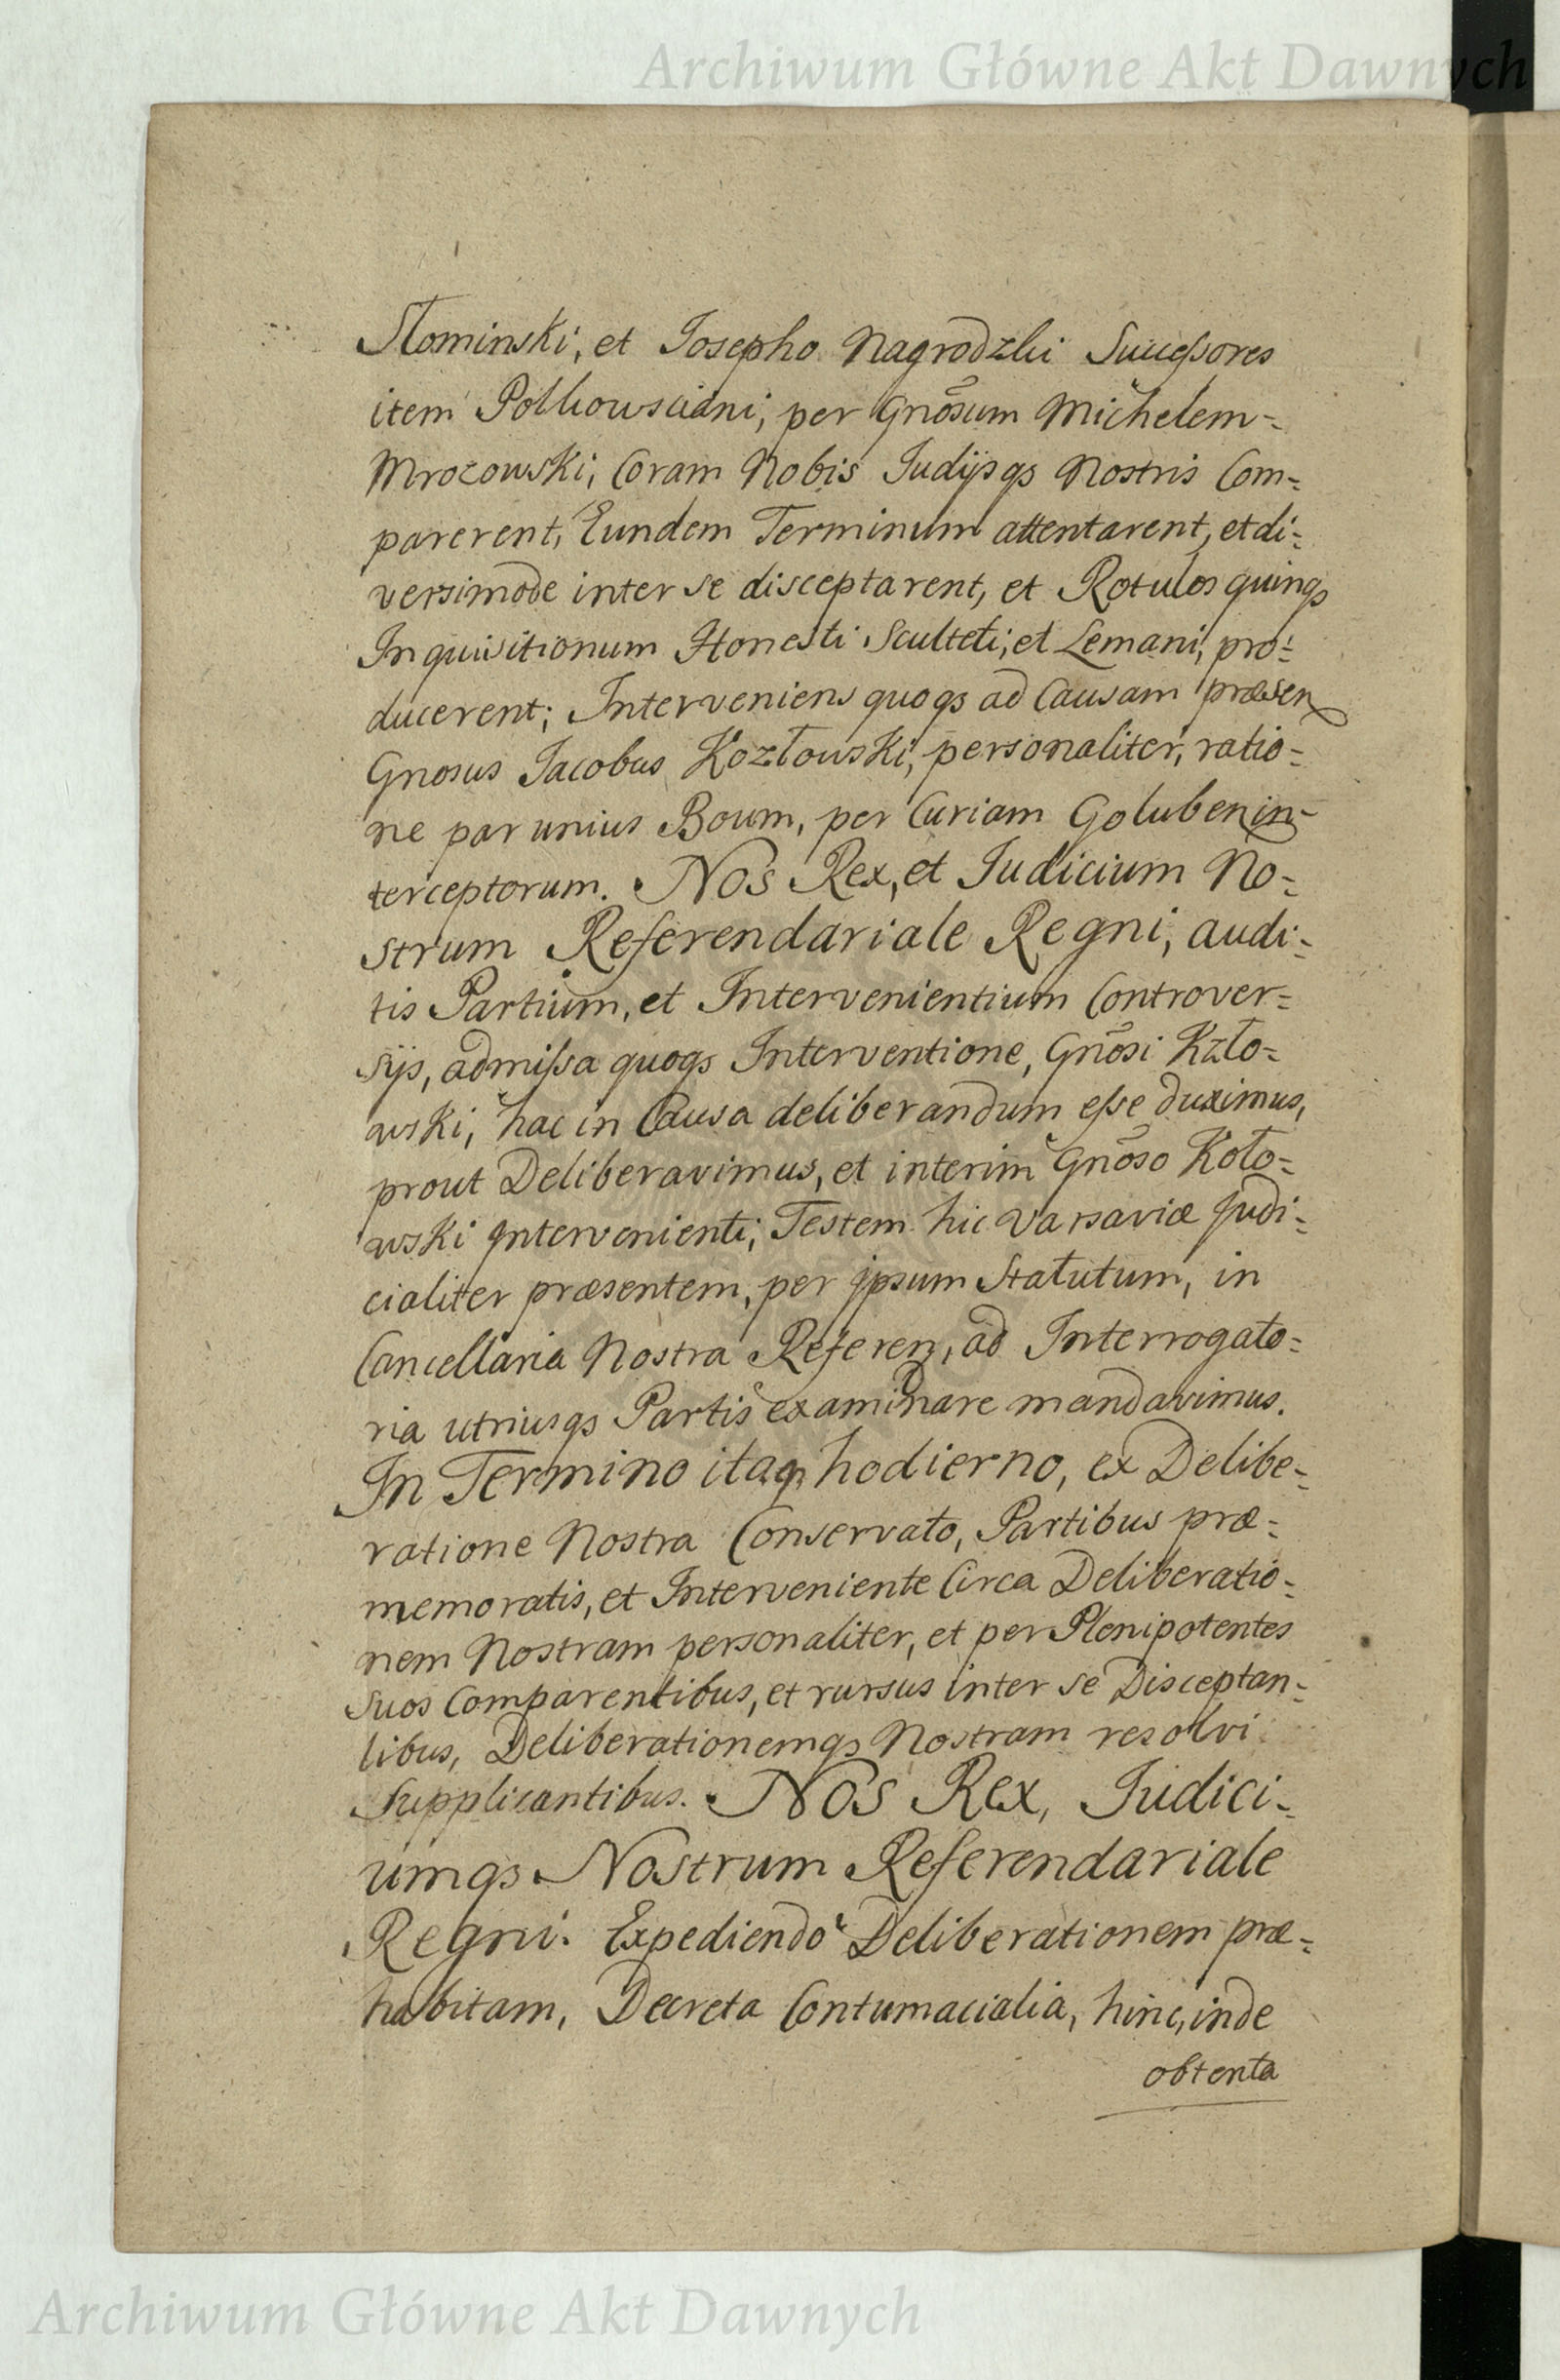 Archiwum Główne Akt Dawnych
Słominski, et Josepho Nagrodzki Successores
item Polkowsciani, per Gnõsum Michelem=
Mrozowski, Coram Nobis Judijsqs Nostris Com=
parerent, Eundem Terminum attentarent, et di=
versimode inter se disceptarent, et Rotulos quinqs
Inquisitionum Honesti Sculteti, et Lemani, pro=
ducerent; Interveniens quoqs ad Causam præsen
Gnosus Jacobus Kozłowski, personaliter, ratio=
ne par unius Boum, per Curiam Goluben in=
terceptorum. Nos Rex, et Judicium No=
strum Referendariale Regni, audi=
tis Partium, et Intervenientium Controver=
sijs, admissa quoqs Interventione, Gnõsi Kzło=
wski, hac in Causa deliberandum esse duximus,
prout Deliberavimus, et interim Gnõso Koło=
wski Intervenienti, Testem hic Varsaviæ Judi=
cialiter præsentem, per Ipsum Statutum, in
Cancellaria Nostra Referen, ad Interrogato=
ria utriusqs Partis examinare mandavimus.
In Termino itaq hodierno, ex Delibe=
ratione Nostra Conservato, Partibus præ=
memoratis, et Interveniente Circa Deliberatio=
nem Nostram personaliter, et per Plenipotentes
Suos Comparentibus, et rursus inter se Disceptan=
tibus, Deliberationemqs Nostram resolvi
Supplicantibus. Nos Rex, Judici=
umqs Nostrum Referendariale
Regni. Expediendo Deliberationem præ=
habitam, Decreta Contumacialia, hinc, inde
obtenta
Archiwum Główne Akt Dawnych